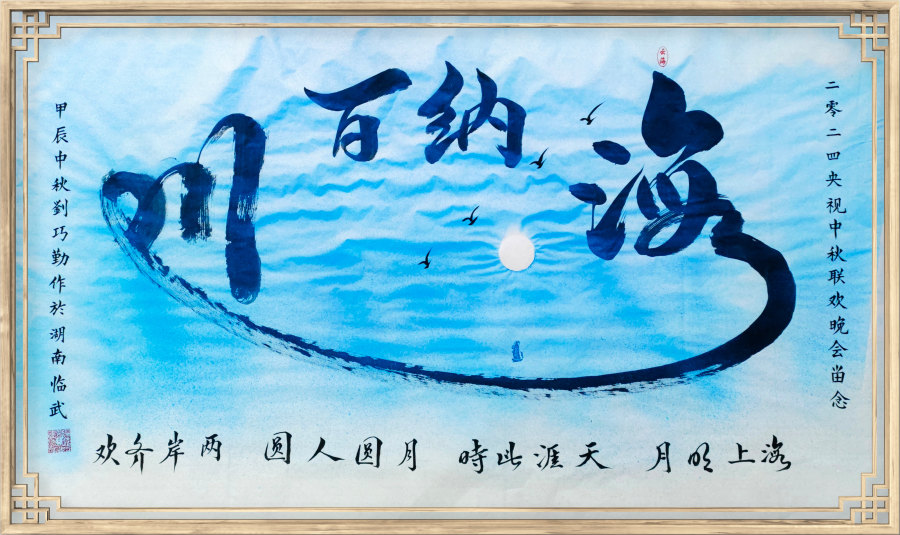 云海
二零二四央视中秋联欢晚会畄念
海纳百川
海上明月 天涯此時 月圆人圆 两岸齐欢
甲辰中秋劉巧勤作於湖南临武